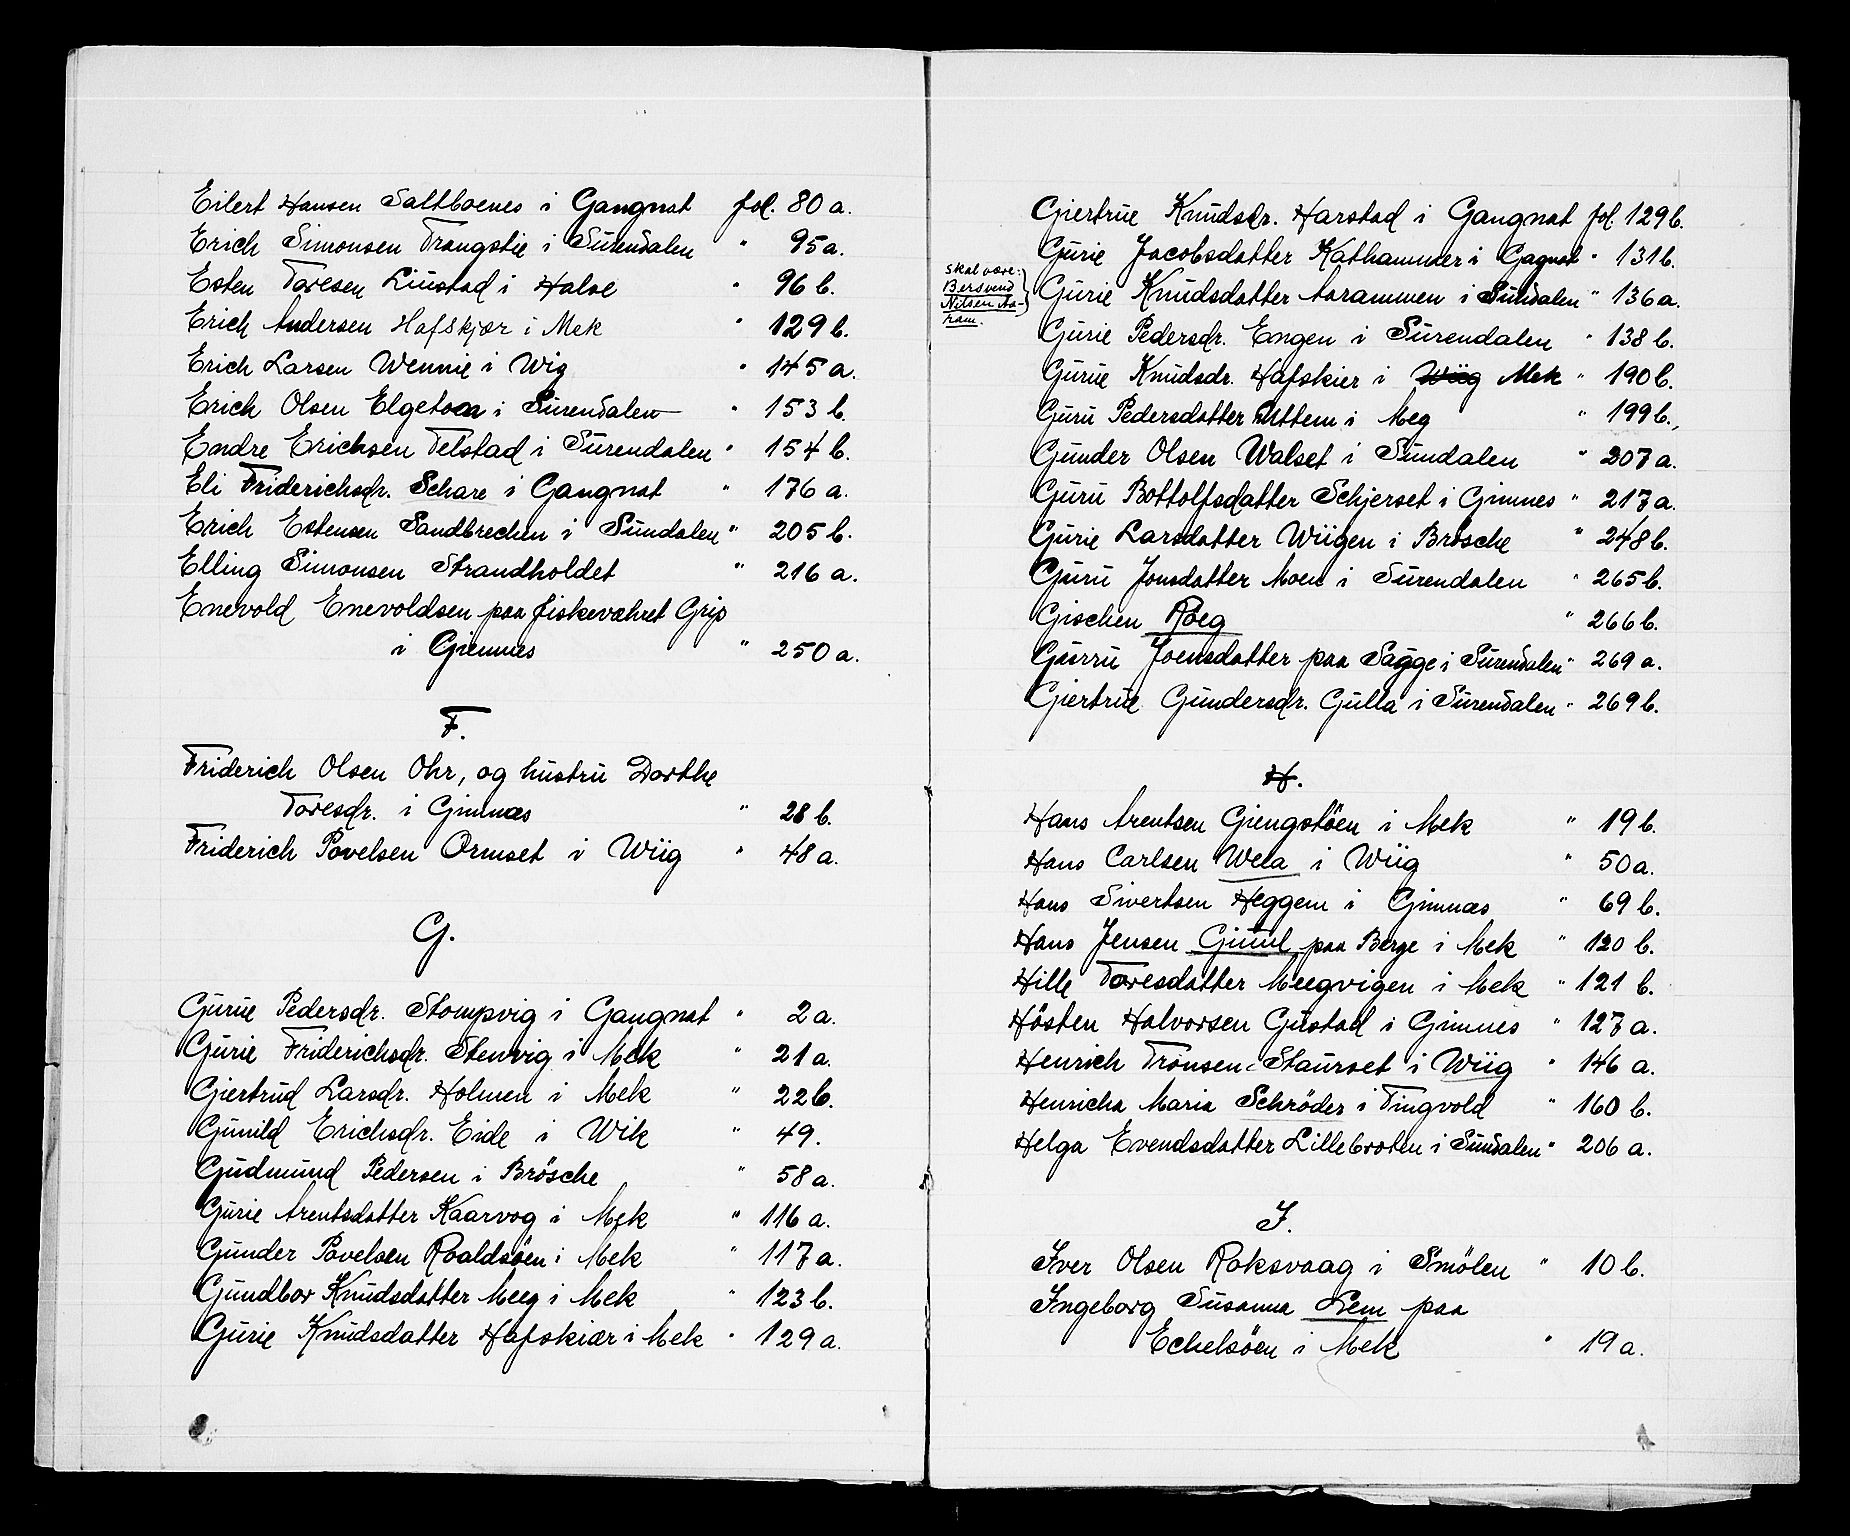 Eilert Hansen Saltboenes i Gangnat fol. 80 a.
Erich Simonsen Trangstie i Surendalen " 95 a.
Esten Toresen Liustad i Halse " 96 b.
Erich Andersen Hafskjær i Mek " 129 b.
Erich Larsen Wennie i Wig " 145 a.
Erich Olsen Elgetoen i Surendalen " 153 b.
Endre Erichsen Telstad i Surendalen " 154 b.
Eli Friderichsdr. Schare i Gangnat " 176 a.
Erich Estensen Sandbrechen i Sundalen " 205 b.
Elling Simonsen Strandholdet " 216 a.
Enevold Enevoldsen paa fiskeværet Grip
i Giemnes " 250 a.
F.
Friderich Olsen Ohr, og hustru Dorthe
Toresdr. i Gimnæs " 28 b.
Friderich Povelsen Ormset i Wiig " 48 a.
G.
Gurue Pedersdr. Stompvig i Gangnat " 2 a.
Gurie Friderichsdr. Stenvig i Mek " 21 a.
Giertrud Larsdr. Holmen i Mek " 22 b.
Gunild Erichsdr. Eide i Wik " 49.
Gudmund Pedersen i Brösche " 58 a.
Gurie Arentsdatter Kaarvog i Mek " 116 a.
Gunder Povelsen Roaldsöen i Mek " 117 a.
Gundbor Knudsdatter Meeg i Mek " 123 b.
Gurie Knudsdatter Hafskiær i Mek " 129 a.
Giertrue Knudsdr. Harstad i Gangnat fol. 129 b.
Gurie Jacobsdatter Kathammer i Gagnat " 131 b.
skal være:
Bersvend
Nilsen Aa-
ram.
Gurie Knudsdatter Aarammen i Sundalen " 136 a.
Gurie Pedersdr. Engen i Surendalen " 138 b.
Gurue Knudsdr. Hafskier i Wiig Mek " 190 b.
Guru Pedersdatter Uttem i Meg " 199 b.
Gunder Olsen Walset i Sundalen " 207 a.
Guru Bottolfsdatter Schjerset i Gimnes " 217 a.
Gurie Larsdatter Wiigen i Brösche " 248 b.
Guru Jonsdatter Moen i Surendalen " 265 b.
Gischen Röeg " 266 b.
Gurru Joensdatter paa Sagge i Surendalen " 269 a.
Giertrue Gundersdr. Gulla i Surendalen " 269 b.
H.
Hans Arentsen Giengstöen i Mek " 19 b.
Hans Carlsen Wela i Wiig " 50 a.
Hans Sivertsen Heggem i Gimnæs " 69 b.
Hans Jensen Giuul paa Berge i Mek " 120 b.
Hille Toresdatter Meegvigen i Mek " 121 b.
Hösten Halvorsen Gustad i Gimnes " 127 a.
Henrich Trönsen Staurset i Wiig " 146 a.
Henricha Maria Schröder i Tingvold " 160 b.
Helga Evendsdatter Lillebroten i Sundalen " 206 a.
I.
Iver Olsen Roksvaag i Smölen " 10 b.
Ingeborg Susanna Lem paa
Echelsöen i Mek " 19 a.